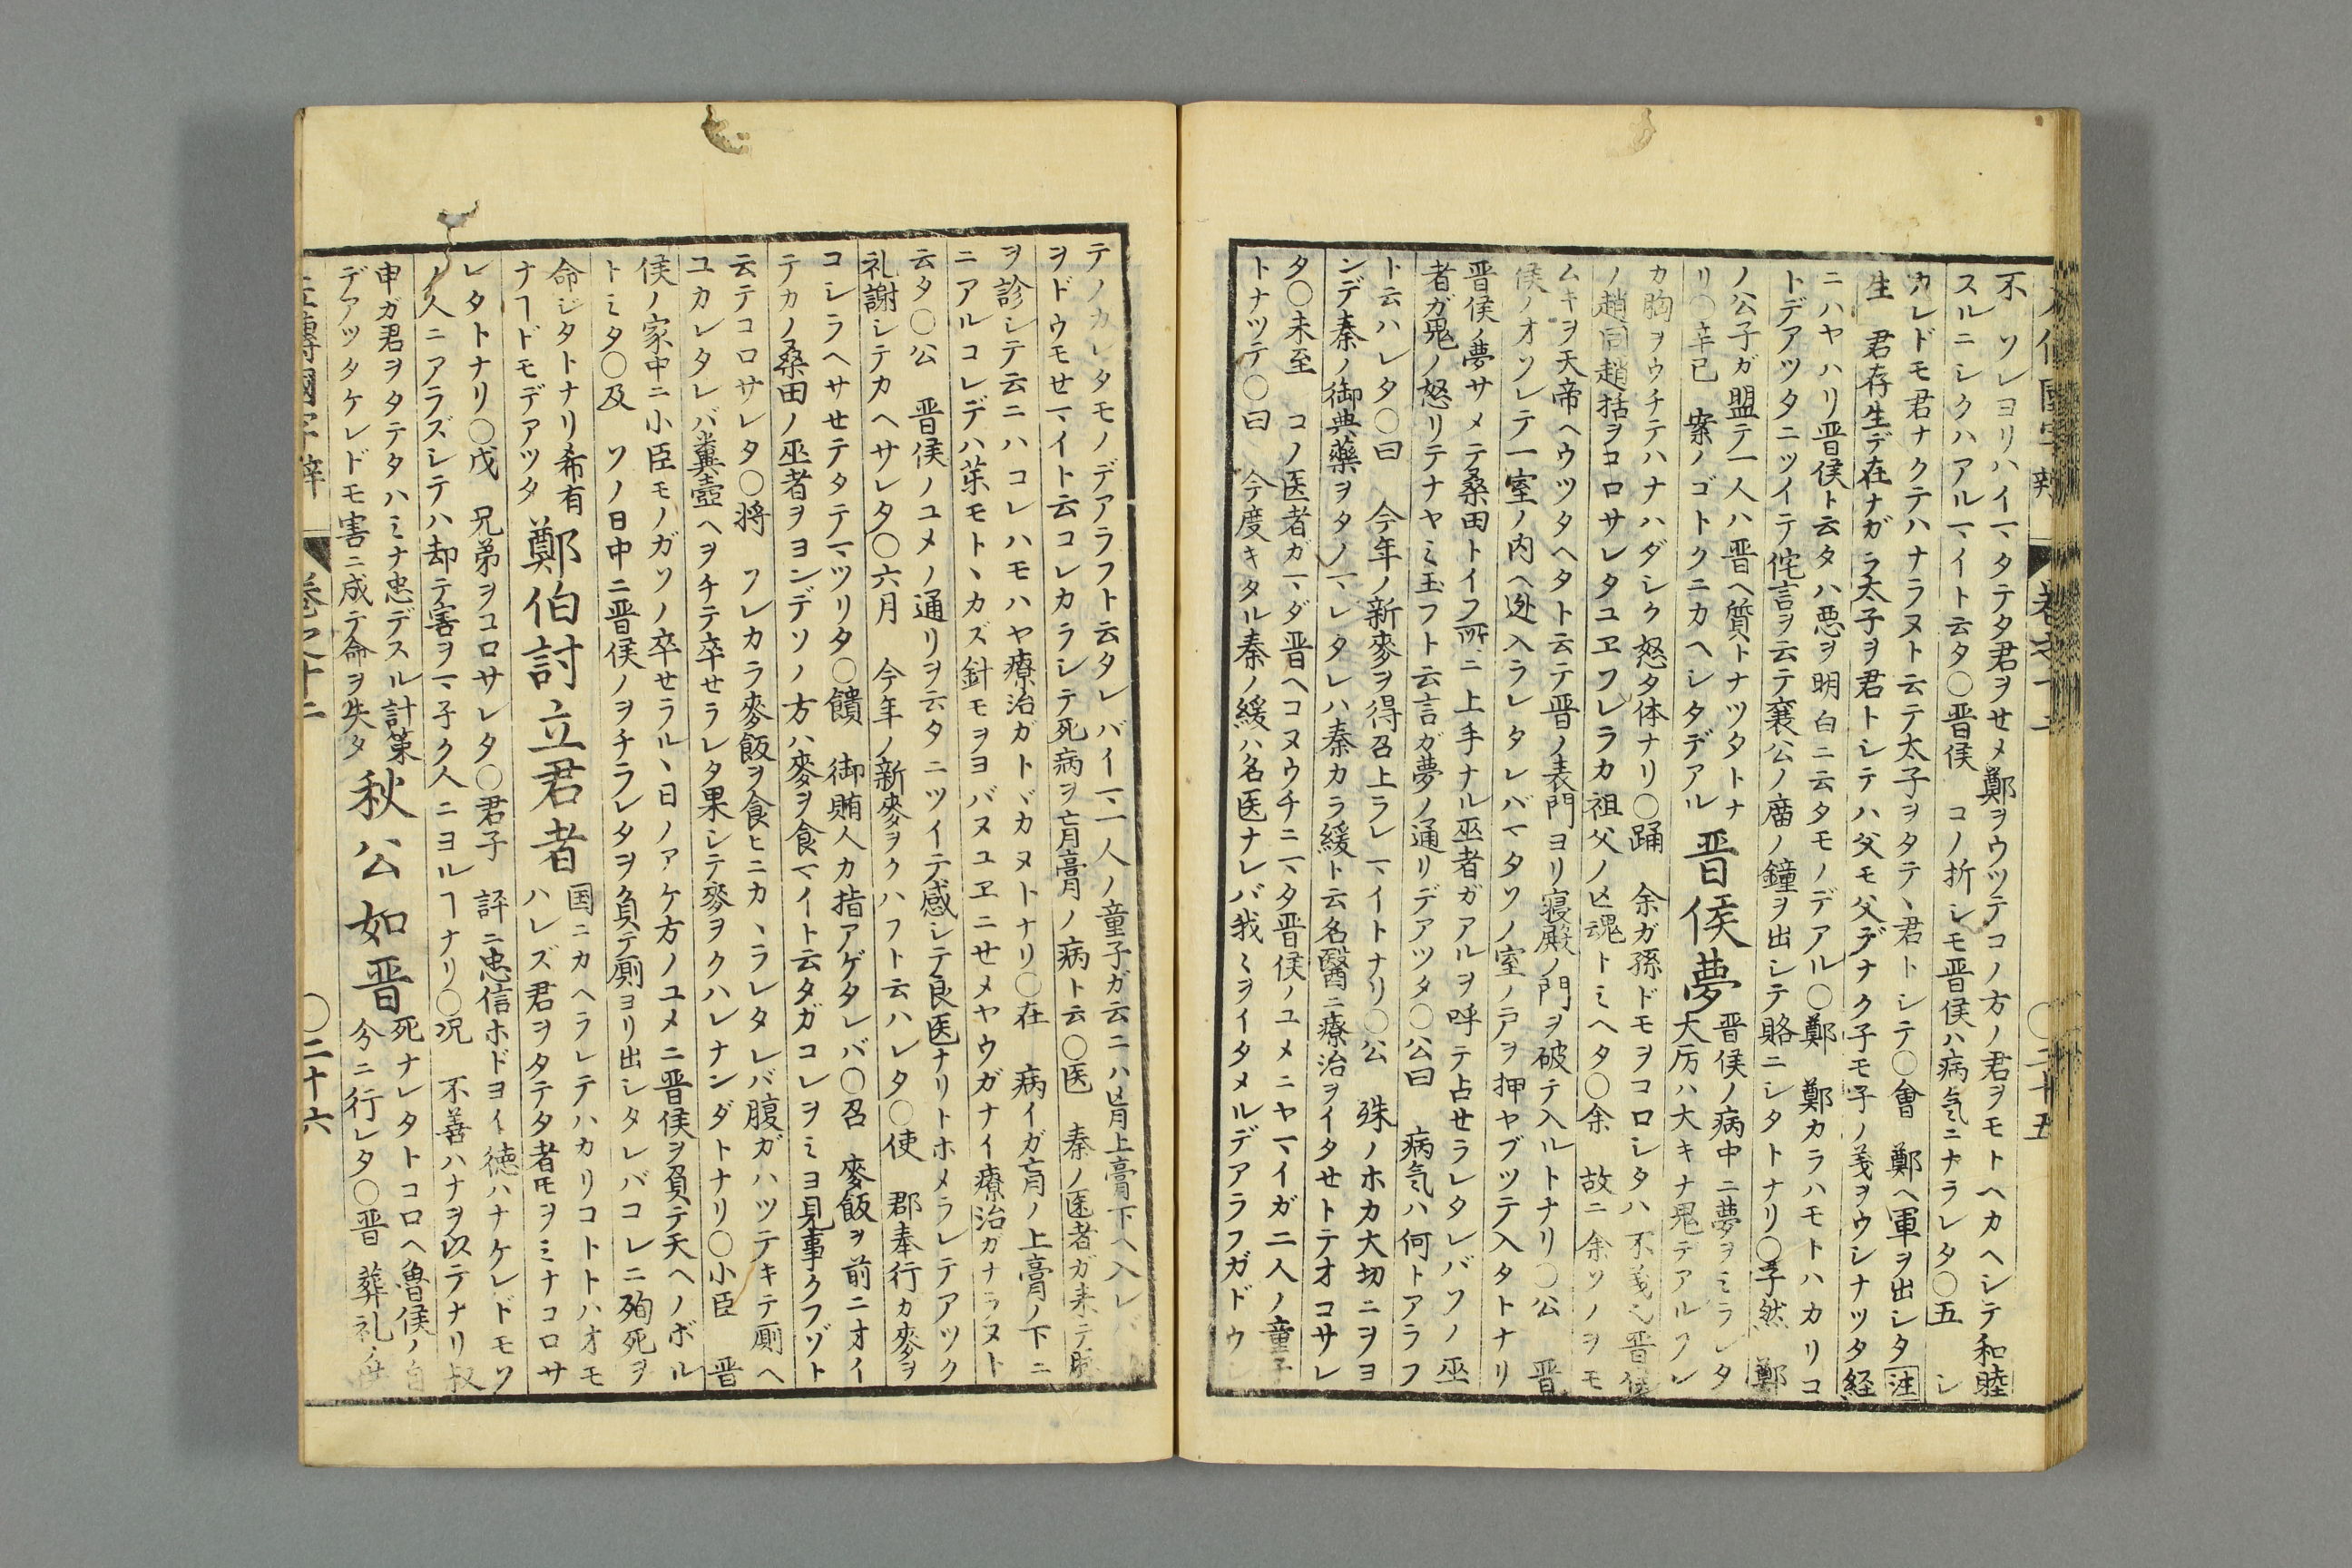 左傳國字辯 巻之十二 ○二十五
不 ソレヨリハイマタテタ君ヲセメ鄭ヲウツテコノ方ノ君ヲモトヘカヘシテ和睦
スルニシクハアルマイト云タ○晋侯 コノ折シモ晋侯ハ病気ニナラレタ○五 シ
カレドモ君ナクテハナラヌト云テ太子ヲタテヽ君トシテ○會 鄭ヘ軍ヲ出シタ注
生 君存生デ在ナガラ太子ヲ君トシテハ父モ父デナク子モ子ノ義ヲウシナツタ経
ニハヤハリ晋侯ト云タハ悪ヲ明白ニ云タモノデアル○鄭 鄭カラハモトハカリコ
トデアツタニツイテ侘言ヲ云テ襄公ノ庿ノ鐘ヲ出シテ賂ニシタトナリ○子然 鄭
ノ公子ガ盟テ一人ハ晋ヘ質トナツタトナ
リ○辛已 案ノゴトクニカヘシタデアル 晋侯夢 晋侯ノ病中ニ夢ヲミラレタ
大厉ハ大キナ鬼デアルソレ
カ胸ヲウチテハナハダシク怒タ体ナリ○踊 余ガ孫ドモヲコロシタハ不義也晋侯
ノ趙同趙括ヲコロサレタユヱソレラカ祖父ノ亾魂トミヘタ○余 故ニ余ソノヲモ
ムキヲ天帝ヘウツタヘタト云テ晋ノ表門ヨリ寝殿ノ門ヲ破テ入ルトナリ○公 晋
侯ノオソレテ一室ノ内ヘ迯入ラレタレバマタソノ室ノ戸ヲ押ヤブツテ入タトナリ
晋侯ノ夢サメテ桑田トイフ所ニ上手ナル巫者ガアルヲ呼テ占セラレタレバソノ巫
者ガ鬼ノ怒リテナヤミ玉フト云言ガ夢ノ通リデアツタ○公曰 病気ハ何トアラフ
ト云ハレタ○曰 今年ノ新麥ヲ得召上ラレマイトナリ○公 殊ノホカ大切ニヲヨ
ンデ秦ノ御典藥ヲタノマレタレハ秦カラ緩ト云名醫ニ療治ヲイタセトテオコサレ
タ○未至 コノ医者ガマダ晋ヘコヌウチニマタ晋侯ノユメニヤマイガ二人ノ童子
トナツテ○曰 今度キタル秦ノ緩ハ名医ナレバ我ミヲイタメルデアラフガドウ
テノカレタモノデアラフト云タレバイマ一人ノ童子ガ云ニハ肓上膏下ヘ入レバ
ヲドウモセマイト云コレカラシテ死病ヲ肓膏ノ病ト云○医 秦ノ医者ガ来テ脈
ヲ診シテ云ニハコレハモハヤ療治ガトヾカヌトナリ○在 病イガ肓ノ上膏ノ下ニ
ニアルコレデハ茱モトヽカズ針モヲヨバヌユヱニセメヤウガナイ療治ガナラヌト
云タ○公 晋侯ノユメノ通リヲ云タニツイテ感シテ良医ナリトホメラレテアツク
礼謝シテカヘサレタ○六月 今年ノ新麥ヲクハフト云ハレタ○使 郡奉行カ麥ヲ
コシラヘサセテタテマツリタ○饋 御賄人カ指アゲタレバ○召 麥飯ヲ前ニオイ
テカノ桑田ノ巫者ヲヨンデソノ方ハ麥ヲ食マイト云タガコレヲミヨ見事クフゾト
云テコロサレタ○将 ソレカラ麥飯ヲ食ヒニカヽラレタレバ腹ガハツテキテ厠ヘ
ユカレタレバ糞壺ヘヲチテ卒セラレタ果シテ麥ヲクハレナンダトナリ○小臣 晋
侯ノ家中ニ小臣モノガソノ卒セラルヽ日ノアケ方ノユメニ晋侯ヲ負テ天ヘノボル
トミタ○及 ソノ日中ニ晋侯ノヲチラレタヲ負テ厠ヨリ出シタレバコレニ殉死ヲ
命ジタトナリ希有
ナヿドモデアツタ 鄭伯討立君者 国ニカヘラレテハカリコトトハオモ
ハレズ君ヲタテタ者𪜈ヲミナコロサ
レタトナリ○戊 兄弟ヲコロサレタ○君子 評ニ忠信ホドヨイ徳ハナケレドモソ
ノ人ニアラズシテハ却テ害ヲマネク人ニヨルヿナリ○况 不善ハナヲ以テナリ叔
申ガ君ヲタテタハミナ忠デスル計策
デアツタケレドモ害ニ成テ命ヲ失タ 秋公如晋 死ナレタトコロヘ魯侯ノ自
分ニ行レタ○晋 葬礼ノ
左傳國字辯 巻之十二 ○二十六